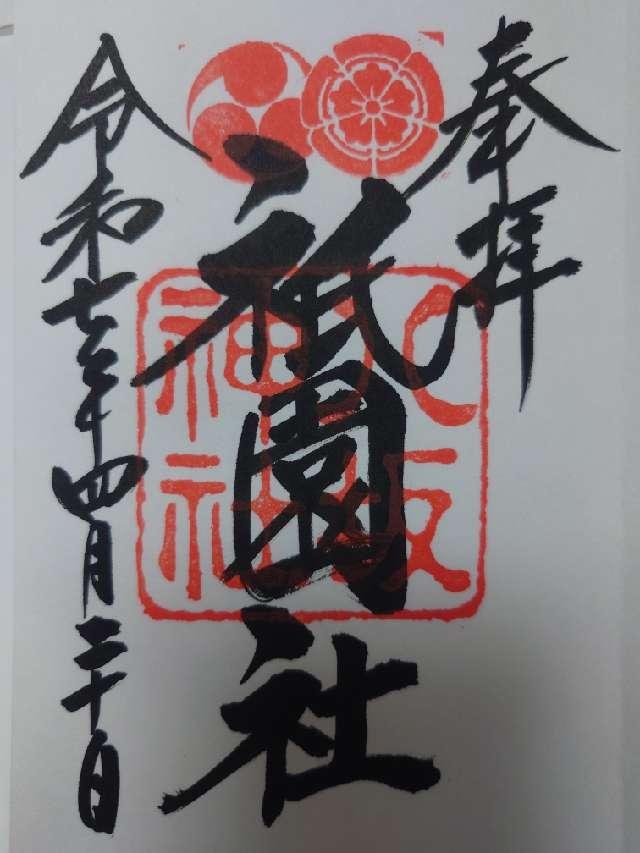 奉拝
八坂神社
祇園社
令和七年四月二十日